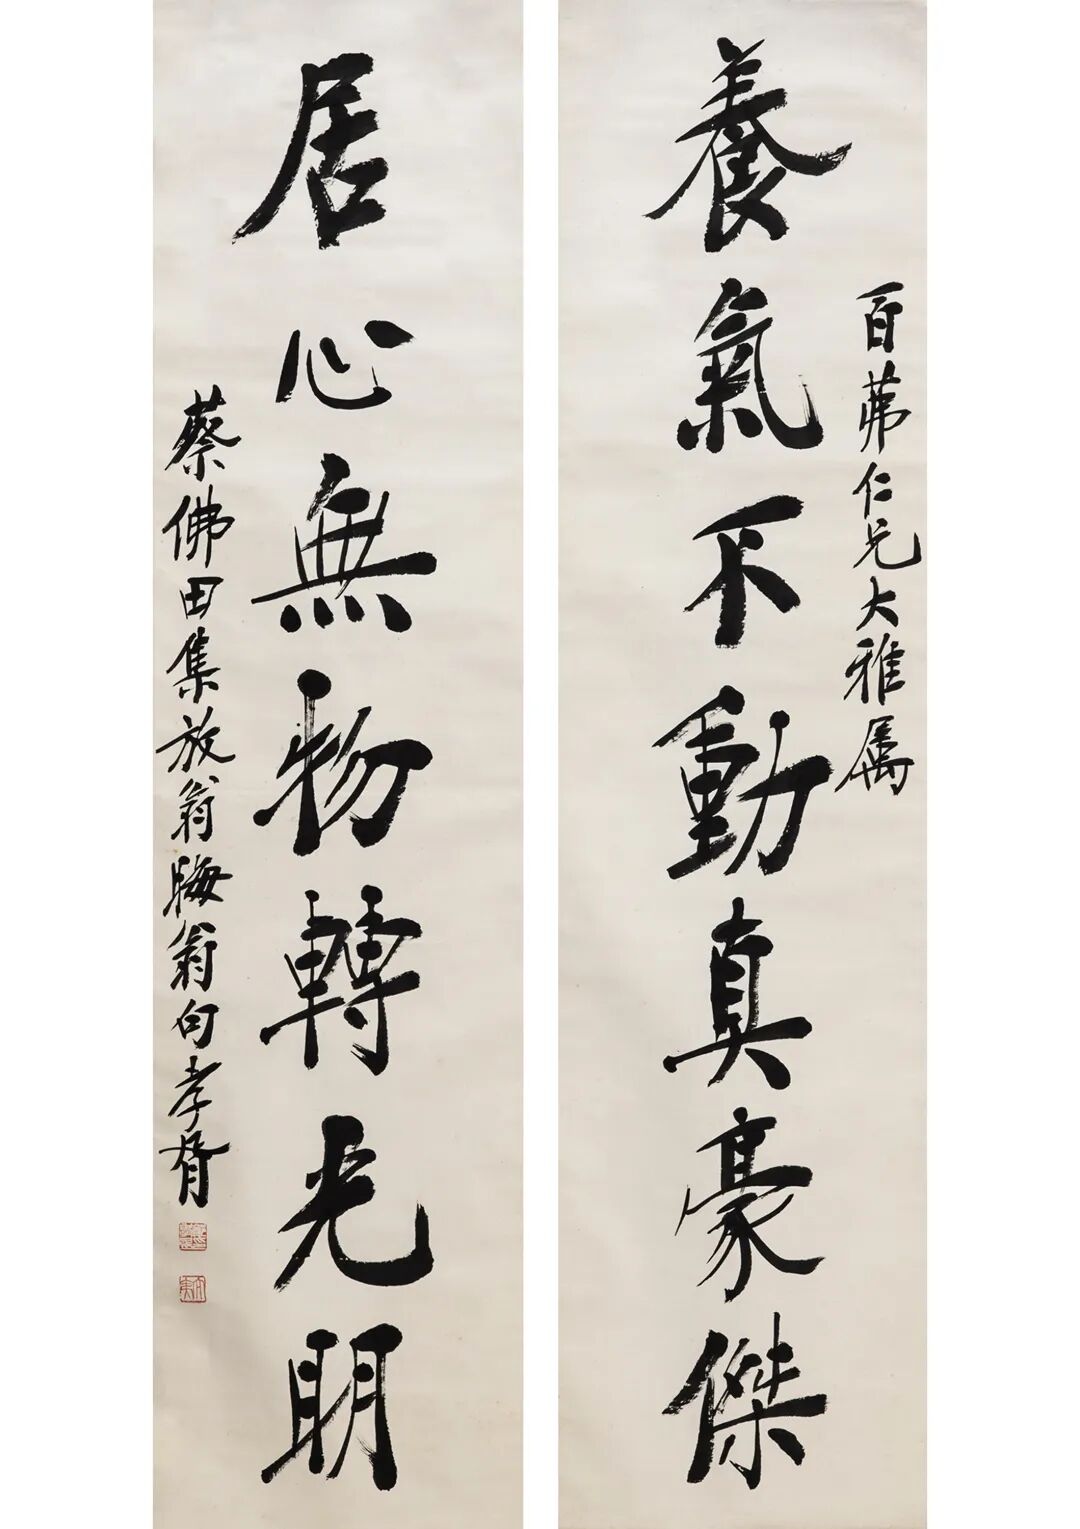 百茀仁兄大雅属
養氣不動真豪傑
居心無物轉光明
蔡佛田集放翁晦翁句孝胥